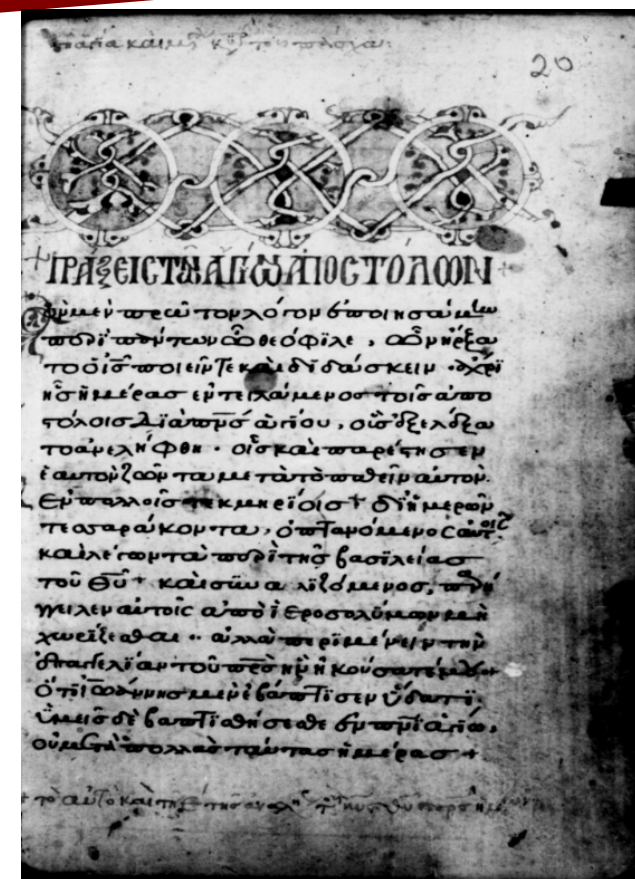 20
ΠΡΑΞΕΙΣ ΤΩΝ ΑΓΙΩΝ ΑΠΟΣΤΟΛΩΝ
μὲν πρῶτον λόγον ἐποιησάμην
περὶ πάντων ὦ θεόφιλε, ὧν ἤρξα
το ὁ ι̅ς̅ ποιεῖν τε καὶ διδάσκειν ἄχρι
ἧς ἡμέρας ἐντειλάμενος τοῖς ἀπο
τόλοις διὰ π̅ν̅ς̅ ἁγίου, οὓς ἐξελέξα
το ἀνελήφθη · οἷς καὶ παρέστησεν
ἑαυτὸν ζῶντα μετὰ τὸ παθεῖν αὐτὸν.
ἐν πολλοῖς τεκμηρίοις + δι ἡμερῶν
τεσσαράκοντα, ὀπτανόμενος αὐτοῖς
καὶ λέγων τὰ περὶ τῆς βασιλείας
τοῦ θ̅υ̅ + καὶ συναλιζόμενος, παρή
γγειλεν αὐτοῖς ἀπὸ ἱεροσολύμων μὴ
χωρίζεσθαι ·· ἀλλὰ περιμένειν τὴν
ἐπαγγελίαν τοῦ π̅ρ̅ς̅ ἣν ἠκούσατέ μου +
ὅτι ἰωάννης μὲν ἐβάπτισεν ὕδατι,
ὑμεῖς δὲ βαπτισθήσεσθε ἐν π̅ν̅ι̅ ἁγίω,
οὐ μετὰ πολλὰς ταύτας ἡμέρας +